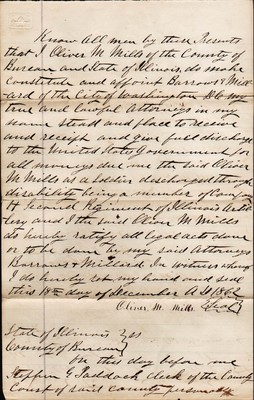 Know All men by these Presents
that I Oliver M Mills of the County of
Bureau and State of Illinois, do make
Constitute and appoint Barrows & Mill-
ard of the City of Washington D.C. my
true and Lawful Attorneys in my
name stead and place to receive
and receipt and give full discharge
to the United States Government for
all moneys due me the said Oliver
M Mills as a Soldier discharged through
disability being a member of Com'y
H Second Regiment of Illinois Artil
lery and I the said Oliver M Mills
do hereby ratify all legal acts done
or to be done by my said Attorneys
Barrows & Millard In witness whereof
I do hereby set my hand and seal
this 18th day of December A.D 186
Oliver M. Mills
State of Illinois
County of Bureau
On this day before me
Stephen G Paddock clerk of the County
Court of said county personally